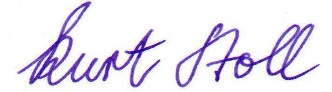 Burt Stoll